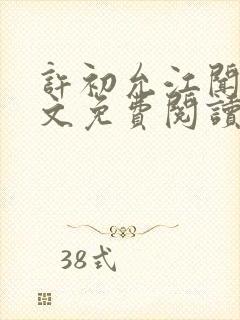 許初允江聞
文免費閱讀
38式